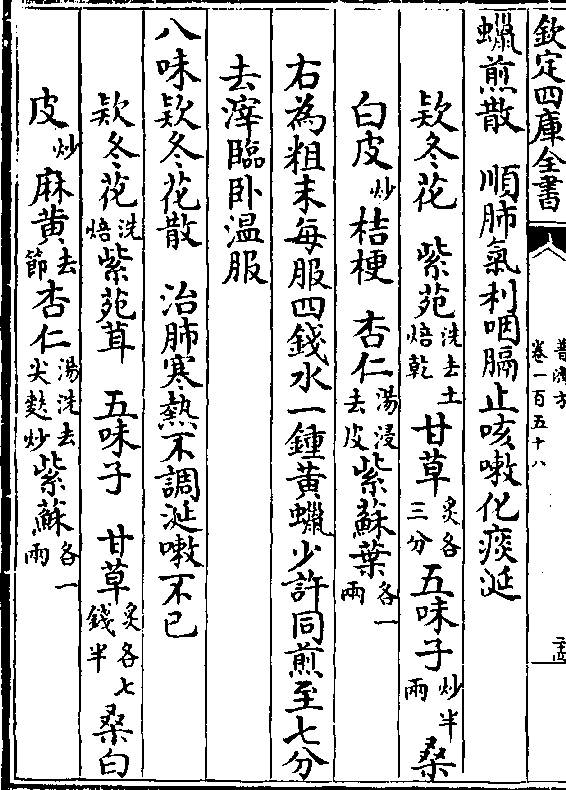 欽定四庫全書
普濟方
卷一百五十八
蠟煎散　順肺氣利咽膈止咳嗽化痰涎
欵冬花　紫菀洗去土焙乾　甘草炙各三分　五味子炒半兩　桑
白皮炒　桔梗　杏仁湯浸去皮　紫蘇葉各一兩
右為粗末每服四錢水一鍾黄蠟少許同煎至七分
去滓臨卧温服
八味欵冬花散　治肺寒熱不調涎嗽不已
欵冬花洗焙　紫菀茸　五味子　甘草炙各七錢半　桑白
皮炒　麻黄去節　杏仁湯洗去尖麩炒　紫蘇各一兩